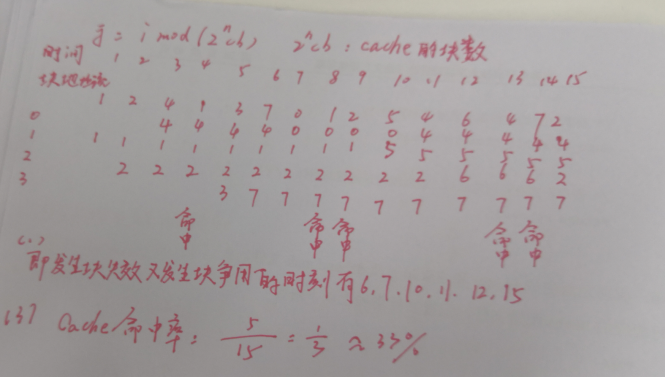 j = i mod (2ⁿcb) 2ⁿcb : cache的块数
时间 1 2 3 4 5 6 7 8 9 10 11 12 13 14 15
块地址流 1 2 4 1 3 7 0 1 2 5 4 6 4 7 2
0 4 4 4 4 0 0 0 0 4 4 4 4 4
1 1 1 1 1 1 1 1 1 1 5 5 5 5 5 5
2 2 2 2 2 2 2 2 2 2 2 6 6 6 2
3 3 7 7 7 7 7 7 7 7 7 7
命中 命中 命中 命中 命中
即发生块失效又发生块争用的时刻有6、7、10、11、12、15
(3) Cache命中率: 5/15 = 1/3 ≈ 33%